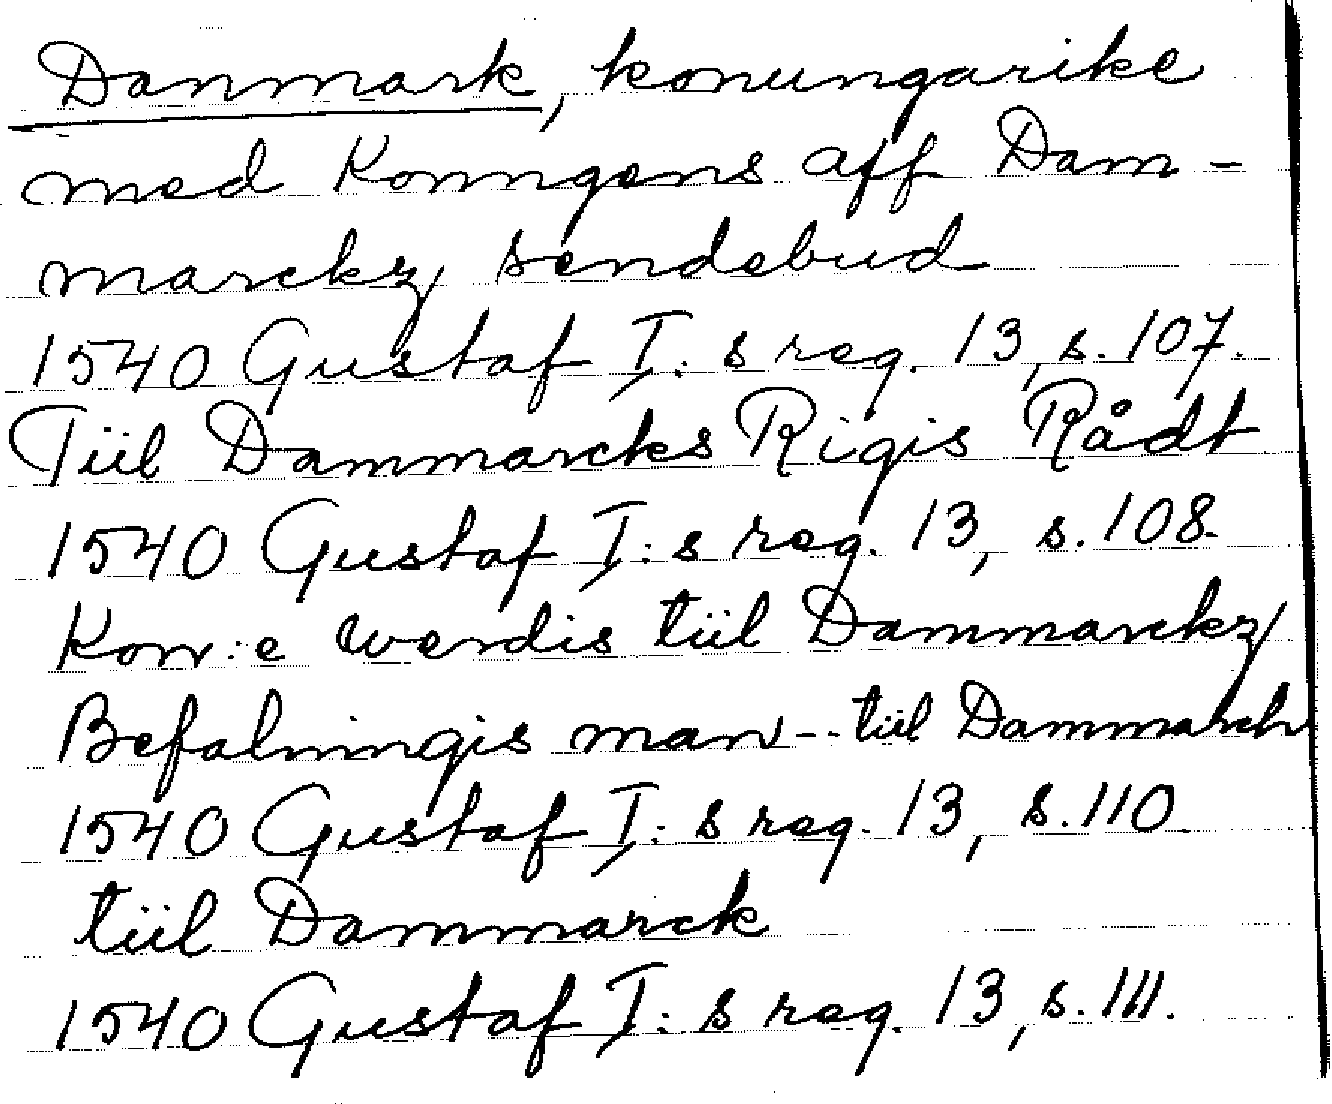 Danmark, konungarike
med Konngens aff Dam-
marckz sendebud
1540 Gustaf I:s reg. 13, s. 107.
Tiil Dammarcks Rigis Rådt
1540 Gustaf I:s reg. 13, s. 108.
Kon:e werdis tiil Dammarckz
Befalningis man -- tiil Dammarck
1540 Gustaf I:s reg. 13, s. 110
tiil Dammarck
1540 Gustaf I:s reg. 13, s. 111.